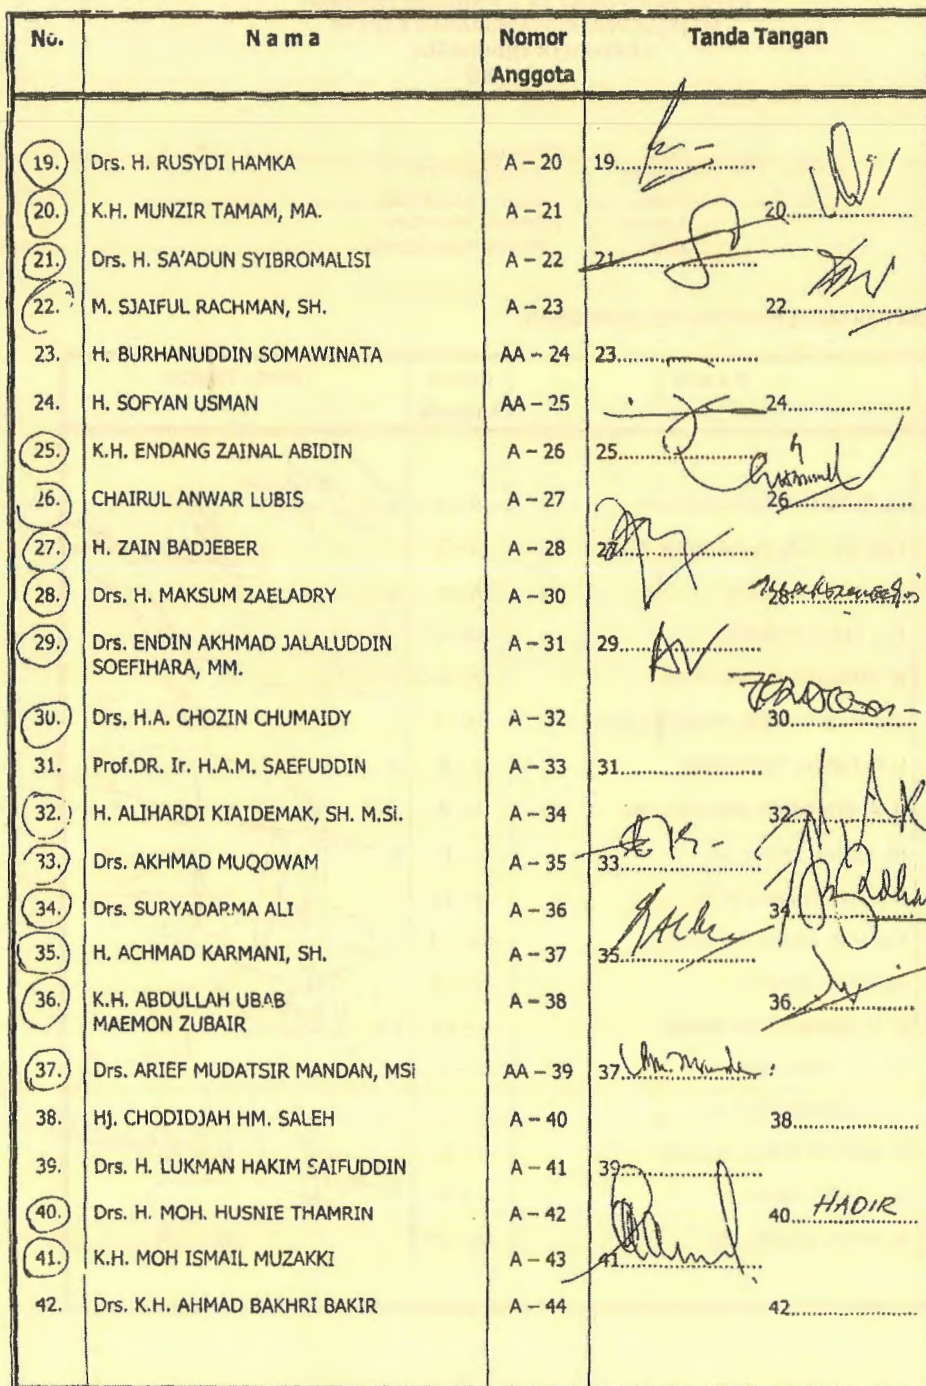 No. Nama Nomor Anggota Tanda Tangan
19. Drs. H. RUSYDI HAMKA A – 20 19....................
20. K.H. MUNZIR TAMAM, MA. A – 21 20....................
21. Drs. H. SA'ADUN SYIBROMALISI A – 22 21....................
22. M. SJAIFUL RACHMAN, SH. A – 23 22....................
23. H. BURHANUDDIN SOMAWINATA AA – 24 23....................
24. H. SOFYAN USMAN AA – 25 24....................
25. K.H. ENDANG ZAINAL ABIDIN A – 26 25....................
26. CHAIRUL ANWAR LUBIS A – 27 26....................
27. H. ZAIN BADJEBER A – 28 27....................
28. Drs. H. MAKSUM ZAELADRY A – 30 28....................
29. Drs. ENDIN AKHMAD JALALUDDIN A – 31 29....................
SOEFIHARA, MM.
30. Drs. H.A. CHOZIN CHUMAIDY A – 32 30....................
31. Prof.DR. Ir. H.A.M. SAEFUDDIN A – 33 31....................
32. H. ALIHARDI KIAIDEMAK, SH. M.Si. A – 34 32....................
33. Drs. AKHMAD MUQOWAM A – 35 33....................
34. Drs. SURYADARMA ALI A – 36 34....................
35. H. ACHMAD KARMANI, SH. A – 37 35....................
36. K.H. ABDULLAH UBAB A – 38 36....................
MAEMON ZUBAIR
37. Drs. ARIEF MUDATSIR MANDAN, MSi AA – 39 37....................
38. Hj. CHODIDJAH HM. SALEH A – 40 38....................
39. Drs. H. LUKMAN HAKIM SAIFUDDIN A – 41 39....................
40. Drs. H. MOH. HUSNIE THAMRIN A – 42 40. HADIR
41. K.H. MOH ISMAIL MUZAKKI A – 43 41....................
42. Drs. K.H. AHMAD BAKHRI BAKIR A – 44 42....................